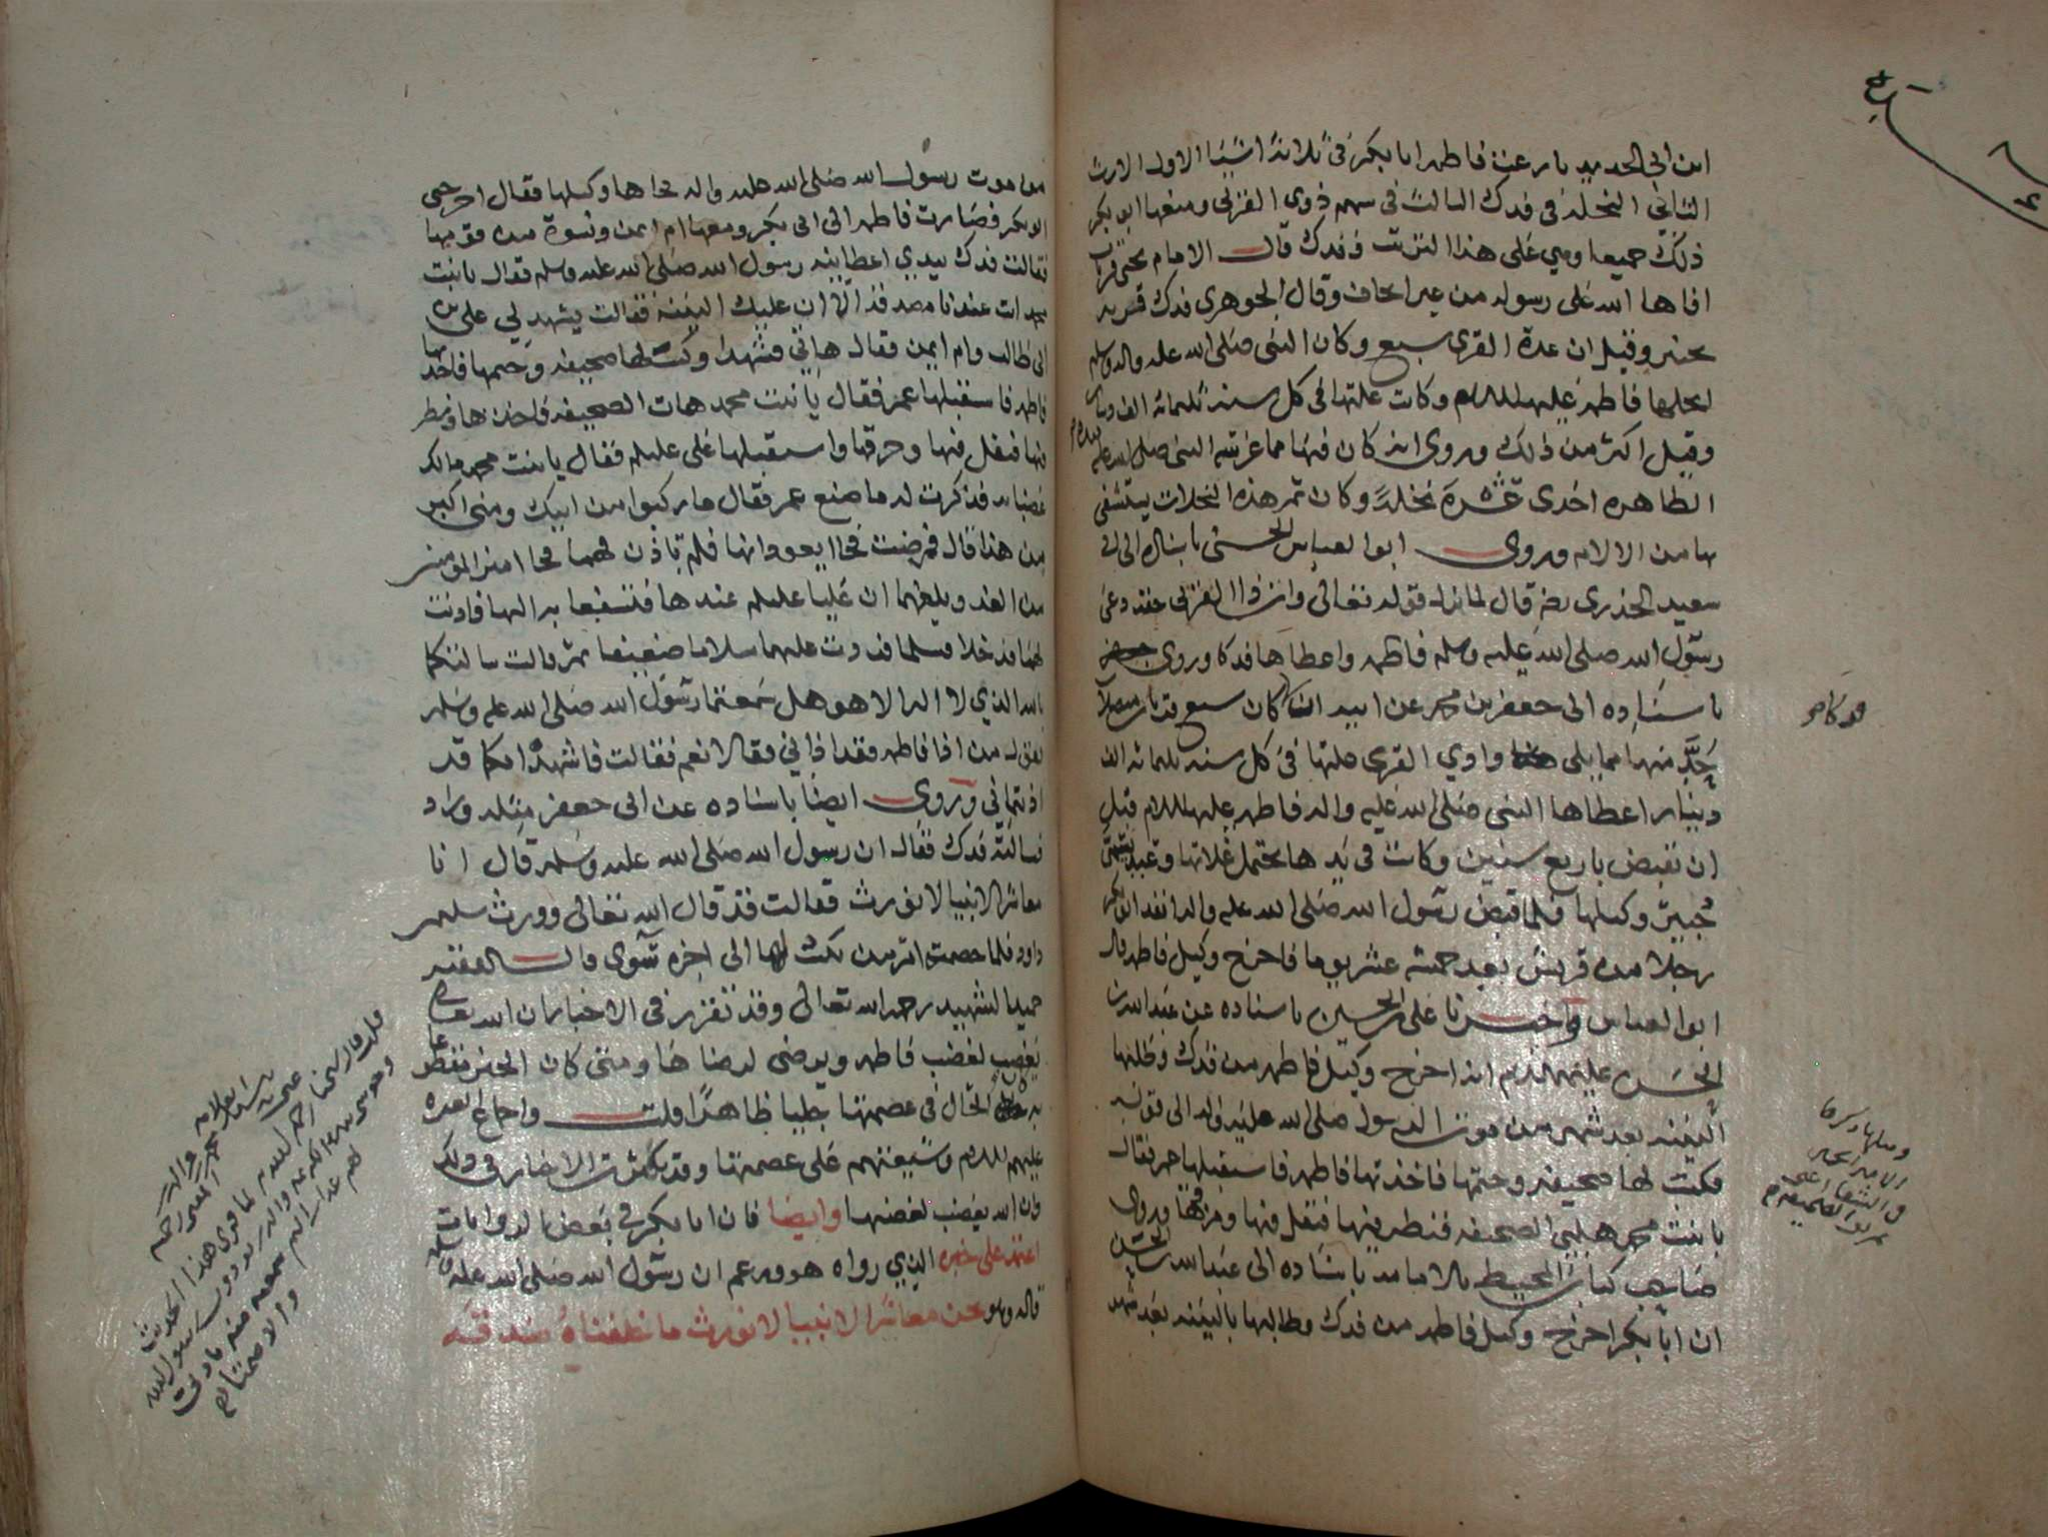 ابن ابي الحديد نازعت فاطمه ابا بكر في ثلاثة اشيا الاول الارث
الثاني النحله في فدك الثالث في سهم ذوي القربى ومنعها ابو بكر
ذلك جميعا وهي على هذا الترتيب ففدك قال الامام يحيى قريه
افاها الله على رسوله من غير ايجاف وقال الجوهري فدك قريه
بخيبر وقيل ان عدة القرى سبع وكان النبي صلى الله عليه واله وسلم
انحلها فاطمه عليها السلام وكانت غلتها في كل سنة ثلثمائه الف دينار
وقيل اكثر من ذلك وروي انه كان فيها مما غرسه النبي صلى الله عليه بيده
الطاهره احدى عشرة نخلة وكان تمر هذه النخلات يستشفى
بها من الالام وروى ابو العباس الحسني باسناده الى ابي
سعيد الخدري رضه قال لما نزل قوله تعالى وات ذا القربى حقه دعى
رسول الله صلى الله عليه وسلم فاطمه واعطاها فدكا وروى
باسناده الى جعفر بن محمد عن ابيه كان سبع قريات
منها مما يلي وادي القرى غلتها في كل سنه ثلثمائه الف
دينار اعطاها النبي صلى الله عليه واله فاطمه عليها السلام قبل
ان يقبض باربع سنين وكانت في يدها تحتمل غلاتها وعبد يسمى
جبير وكيلها فلما قبض رسول الله صلى الله عليه واله انفذ ابو بكر
رجلا من قريش بعد خمسة عشر يوما فاخرج وكيل فاطمه قال
ابو العباس واخبرنا علي بن الحسين باسناده عن عبد الله بن
الحسن عليهم السلام انه اخرج وكيل فاطمه من فدك وطلبها
البينه بعد شهر من موت الرسول صلى الله عليه واله الى قوله
فكتب لها صحيفه وختمها فاخذتها فاطمه فاستقبلها عمر فقال
يا بنت محمد هلمي الصحيفه فنظر فيها فتفل فيها ومزقها وروى
صاحب كتاب المحيط بالامامه باسناده الى عبد الله بن الحسن
ان ابا بكر اخرج وكيل فاطمه من فدك وطالبها بالبينه بعد شهر
من موت رسول الله صلى الله عليه واله فجاها وكيلها فقال اخرجني
ابو بكر فصارت فاطمه الى ابي بكر ومعها ام ايمن ونسوة من قومها
فقالت فدك بيدي اعطانيه رسول الله صلى الله عليه وسلم فقال يا بنت
محمد انت عندنا مصدقه الا ان عليك البينه فقالت يشهد لي علي بن
ابي طالب وام ايمن فقال هاتي فشهدا وكتب لها صحيفه وختمها فاخذتها
فاطمه فاستقبلها عمر فقال يا بنت محمد هات الصحيفه فاخذها ونظر
فيها فتفل فيها وخرقها واستقبلها علي عليلم فقال يا بنت محمد مالك
غضبانه فذكرت له ما صنع عمر فقال ما ركبوا من ابيك ومني اكبر
من هذا قال فمرضت فجاا يعودانها فلم تاذن لهما فجاا امير المؤمنين
من الغد وبلغهما ان عليا عليلم عندها فتشفعا به اليها فاذنت
لهما فدخلا فسلما فردت عليهما سلاما ضعيفا ثم قالت سالتكما
بالله الذي لا اله الا هو هل سمعتما رسول الله صلى الله عليه وسلم
يقول من اذا فاطمه فقد اذاني فقالا نعم فقالت فاشهد انكما قد
اذيتماني وروى ايضا باسناده عن ابي جعفر مثله وزاد
فسالته فدك فقال ان رسول الله صلى الله عليه وسلم قال انا
معاشر الانبيا لا نورث فقالت قد قال الله تعالى وورث سليمن
داود فلما خصمته امر من يكتب لها الى اخره سوى قال الفقيه
حميد الشهيد رحمه الله تعالى وقد تقرر في الاخبار ان الله تعالى
يغضب لغضب فاطمه ويرضى لرضاها ومتى كان الخبر مقطوعا
به كان الحال في عصمتها جليا ظاهرا قلت واجماع العتره
عليهم السلام وشيعتهم على عصمتها وقد تكثرت الاخبار في ذلك
وان الله يغضب لغضبها وايضا فان ابا بكر في بعض الروايات
اعتمد على خبره الذي رواه هو وزعم ان رسول الله صلى الله عليه وسلم
قاله وهو نحن معاشر الانبيا لا نورث ما خلفناه صدقه